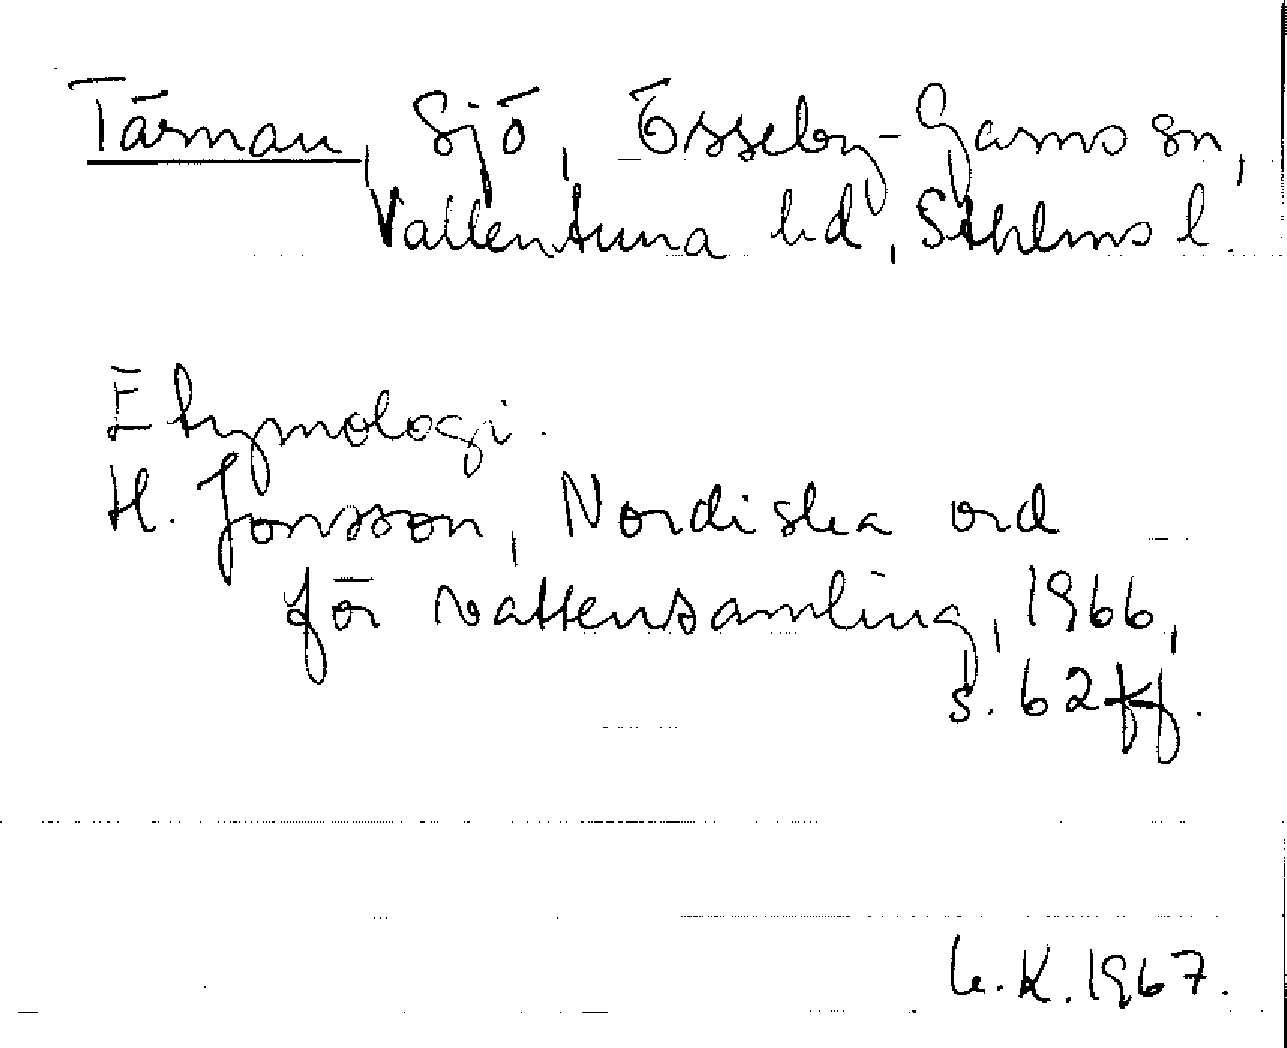 Tärnan, Sjö, Össeby-Garns sn,
Vallentuna hd, Sthlms l.
Etymologi.
H. Jonsson, Nordiska ord
för vattensamling, 1966,
s. 62 ff.
K. 1967.